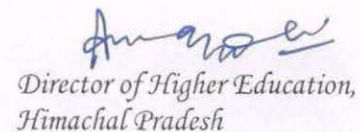 Director of Higher Education,
Himachal Pradesh